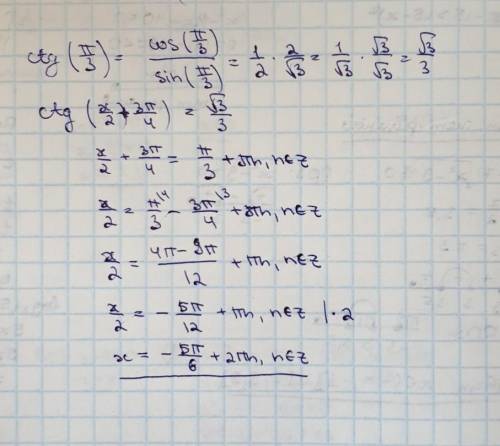 ctg (π/3) = cos(π/3)/sin(π/3) = 1/2 · 2/√3 = 1/√3 · √3/√3 = √3/3
ctg (x/2 + 3π/4) = √3/3
x/2 + 3π/4 = π/3 + πn, n∈Z
x/2 = π/3 |4 - 3π/4 |3 + πn, n∈Z
x/2 = (4π - 9π)/12 + πn, n∈Z
x/2 = - 5π/12 + πn, n∈Z | · 2
x = - 5π/6 + 2πn, n∈Z